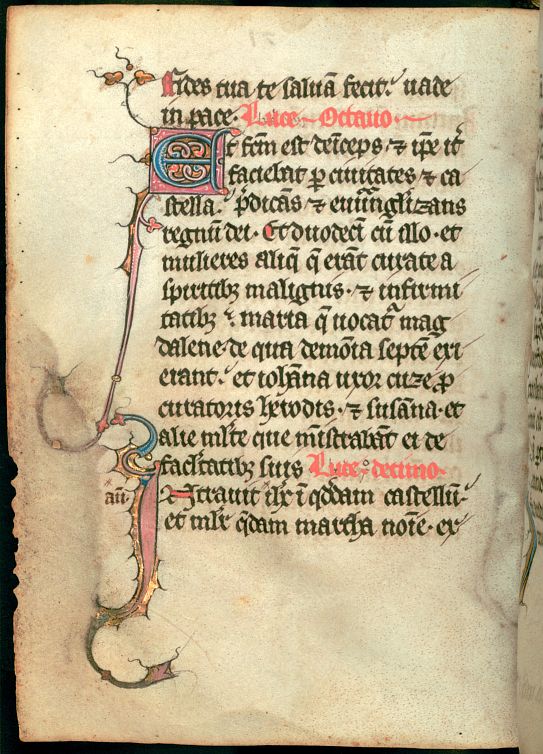 fides tua te saluā fecit· uade
in pace· Luce Octauo
Et fc̄m est deīceps· ⁊ ip̄e it̄
faciebat p ciuitates ⁊ ca
stella· p̄dicās ⁊ euuāglizans
regnū dei· Et duodecī cū illo· et
mulieres aliq̄ q̄ erāt curate a
spiritibꝫ malignis· ⁊ infirmi
tatibꝫ maria q̄ uocat᷑ mag
dalene· de qua demōia septē exi
erant· et iohāna uxor cuze p
curatoris herodis· ⁊ susāna· et
alie ml̄te que mīstrabāt ei de
facl̄tatibꝫ suis Luce· decimo·
Intrauit ih̄c ī qd̄dam castellū·
et ml̄r qd̄am martha noīe· ex